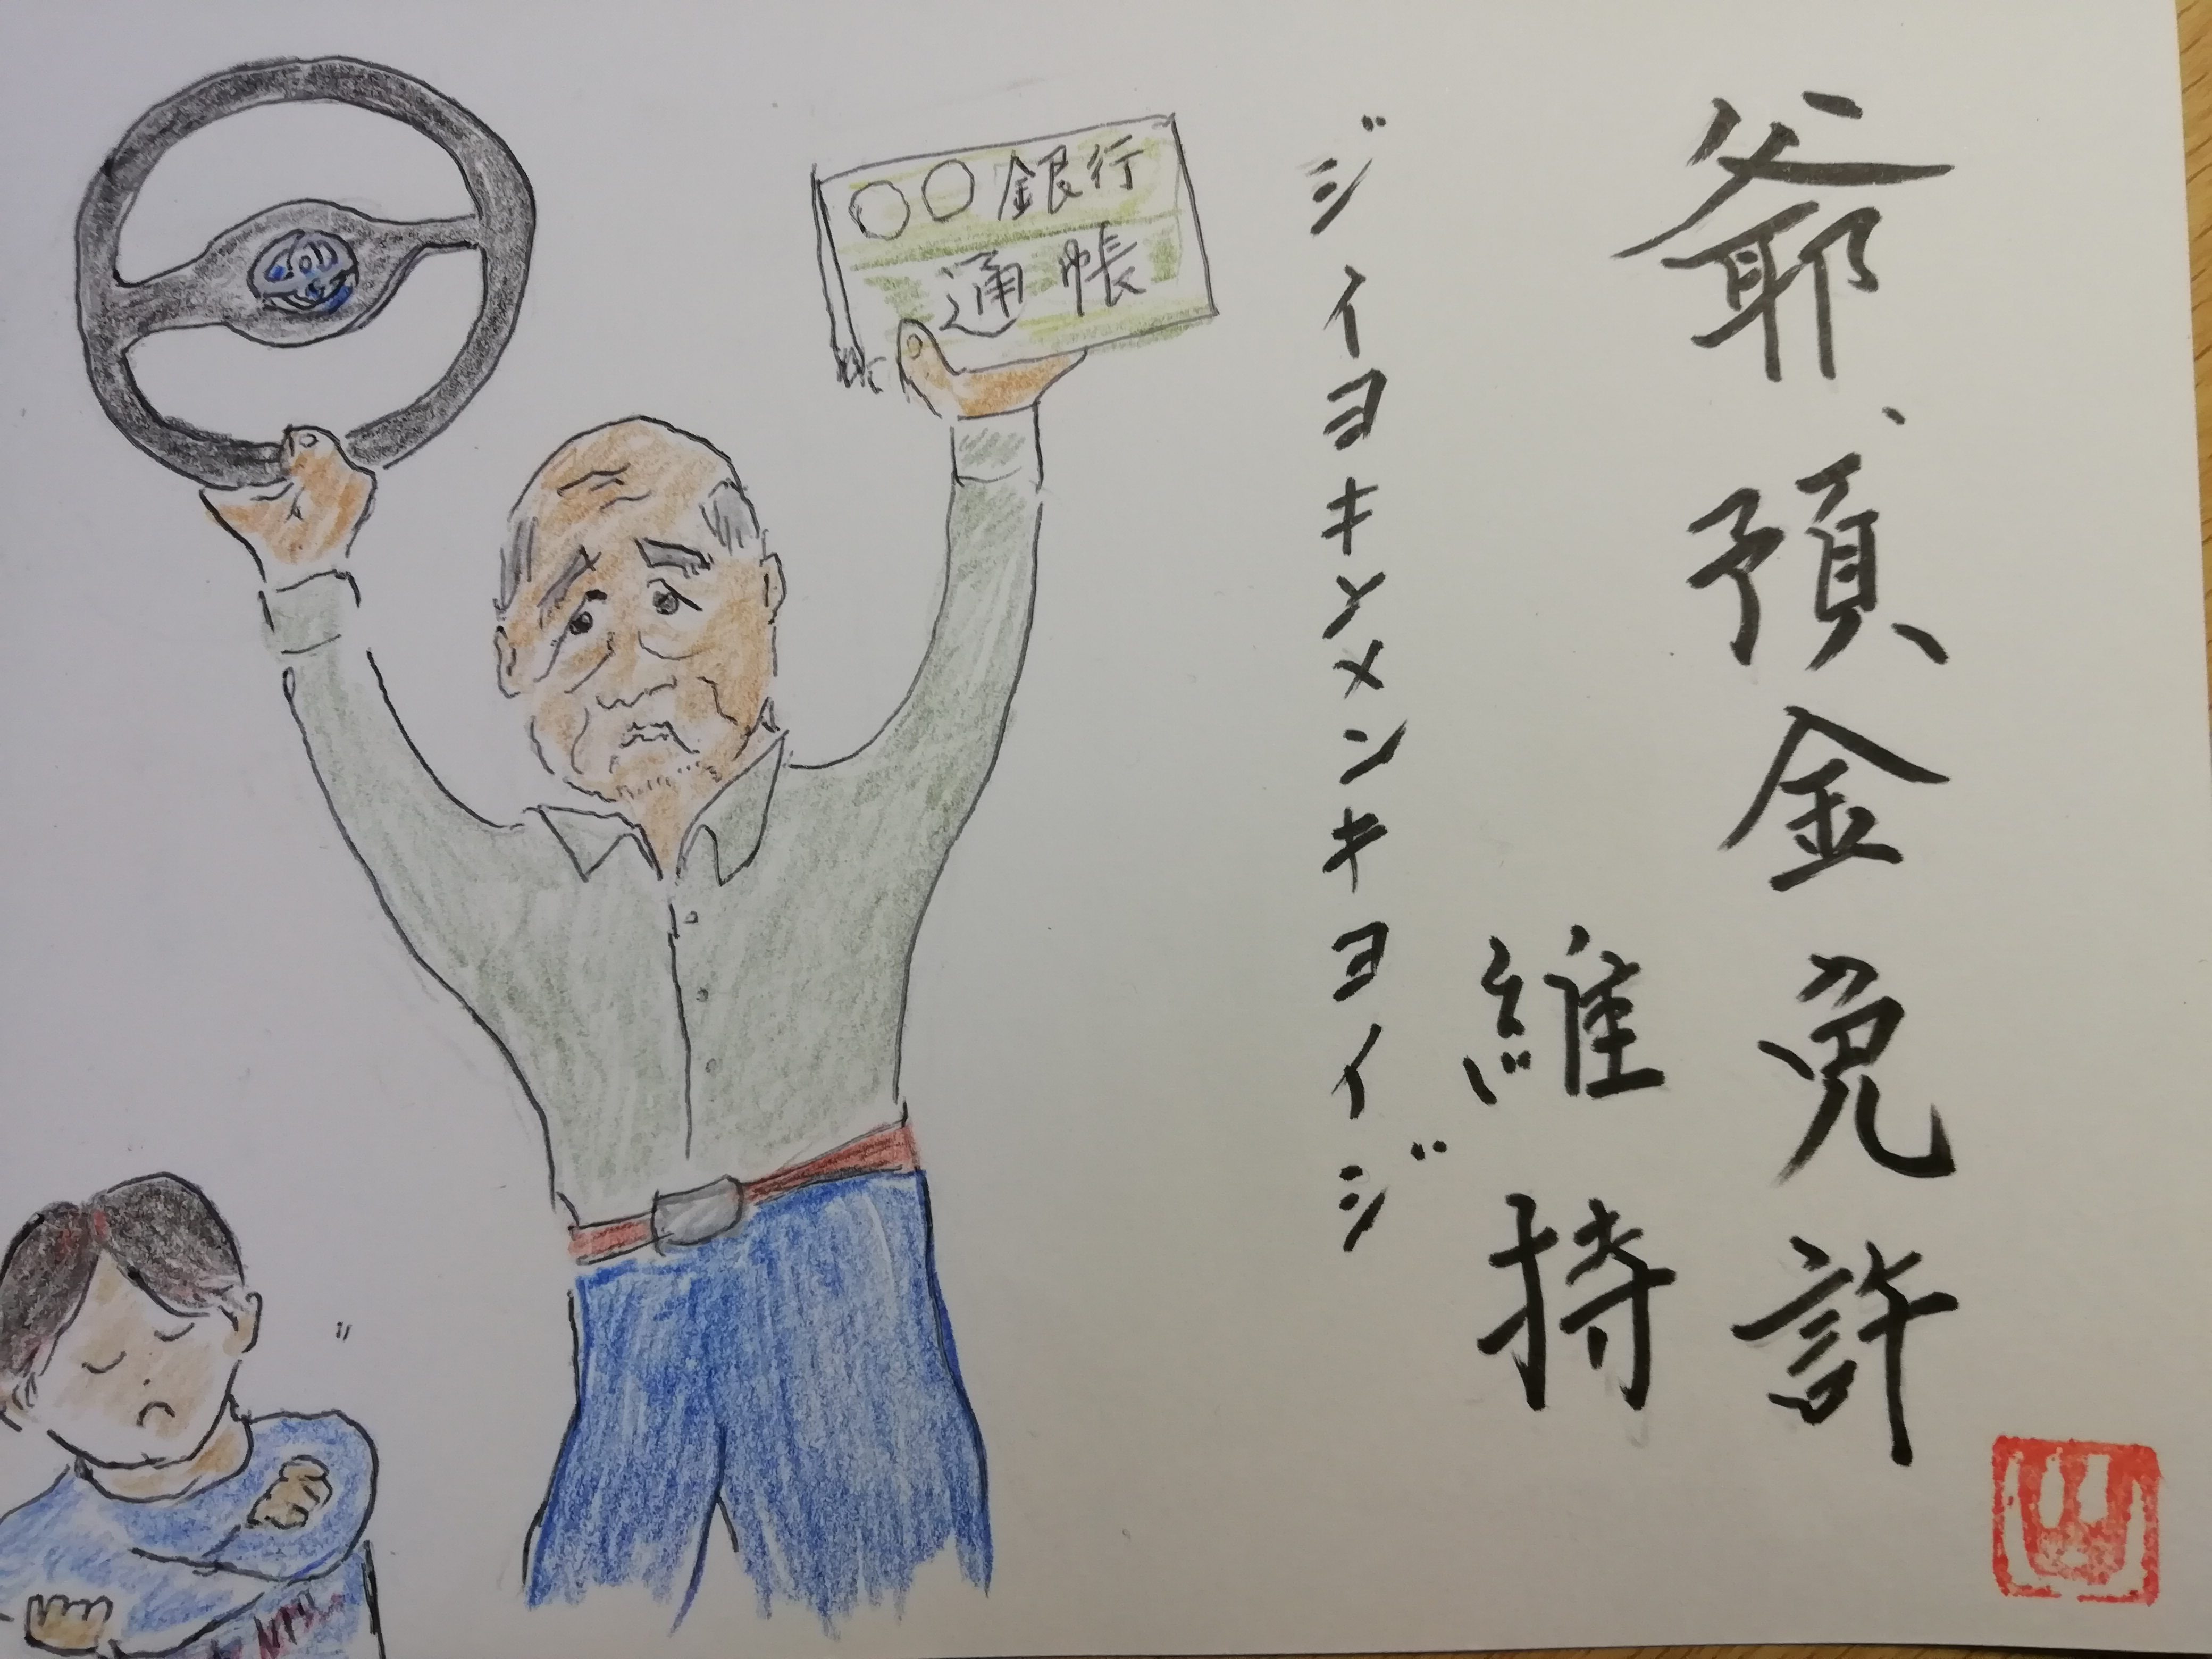 爺、預金免許
維持
ジイヨキンメンキヨイジ
○○銀行
通帳